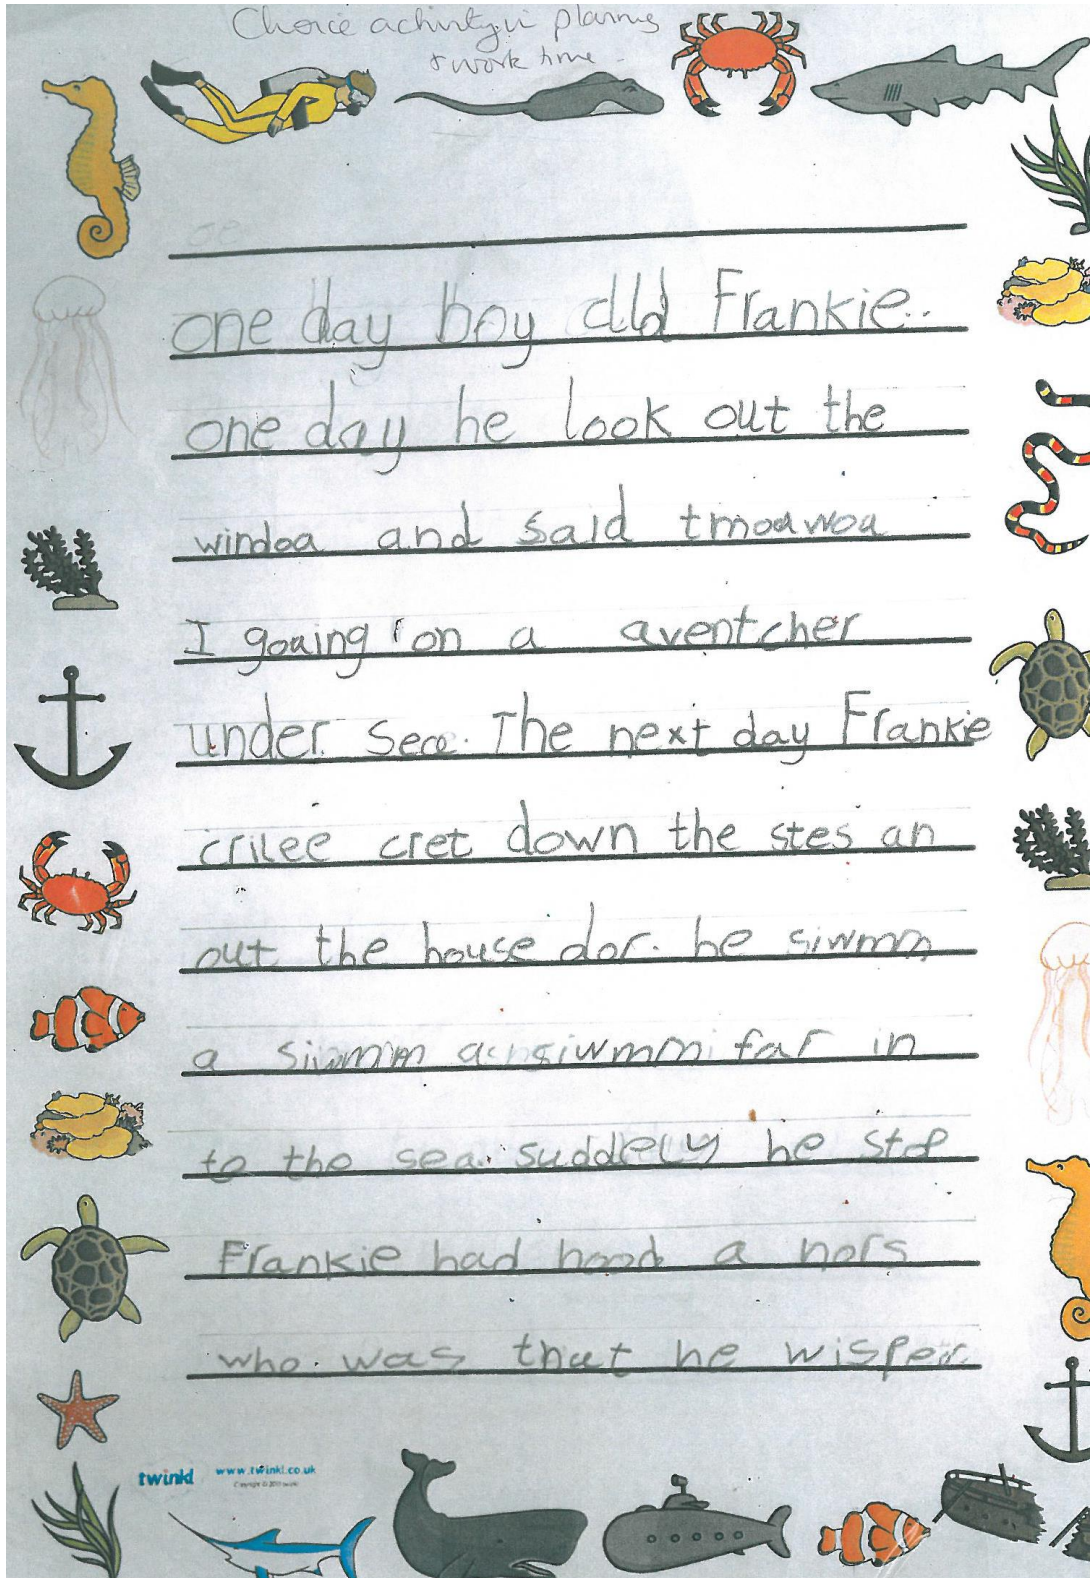 Choice activity in planning
& work time -
oe
one day boy clld Frankie..
one day he look out the
windoa and said tmoawoa
I goaing on a aventcher
under sea. The next day Frankie
crilee cret down the stes an
out the house dor. he siwmm
a siwmm a siwmm far in
to the sea. suddely he stop
Frankie had hood a nors
who was that he wisper.
twinkl www.twinkl.co.uk